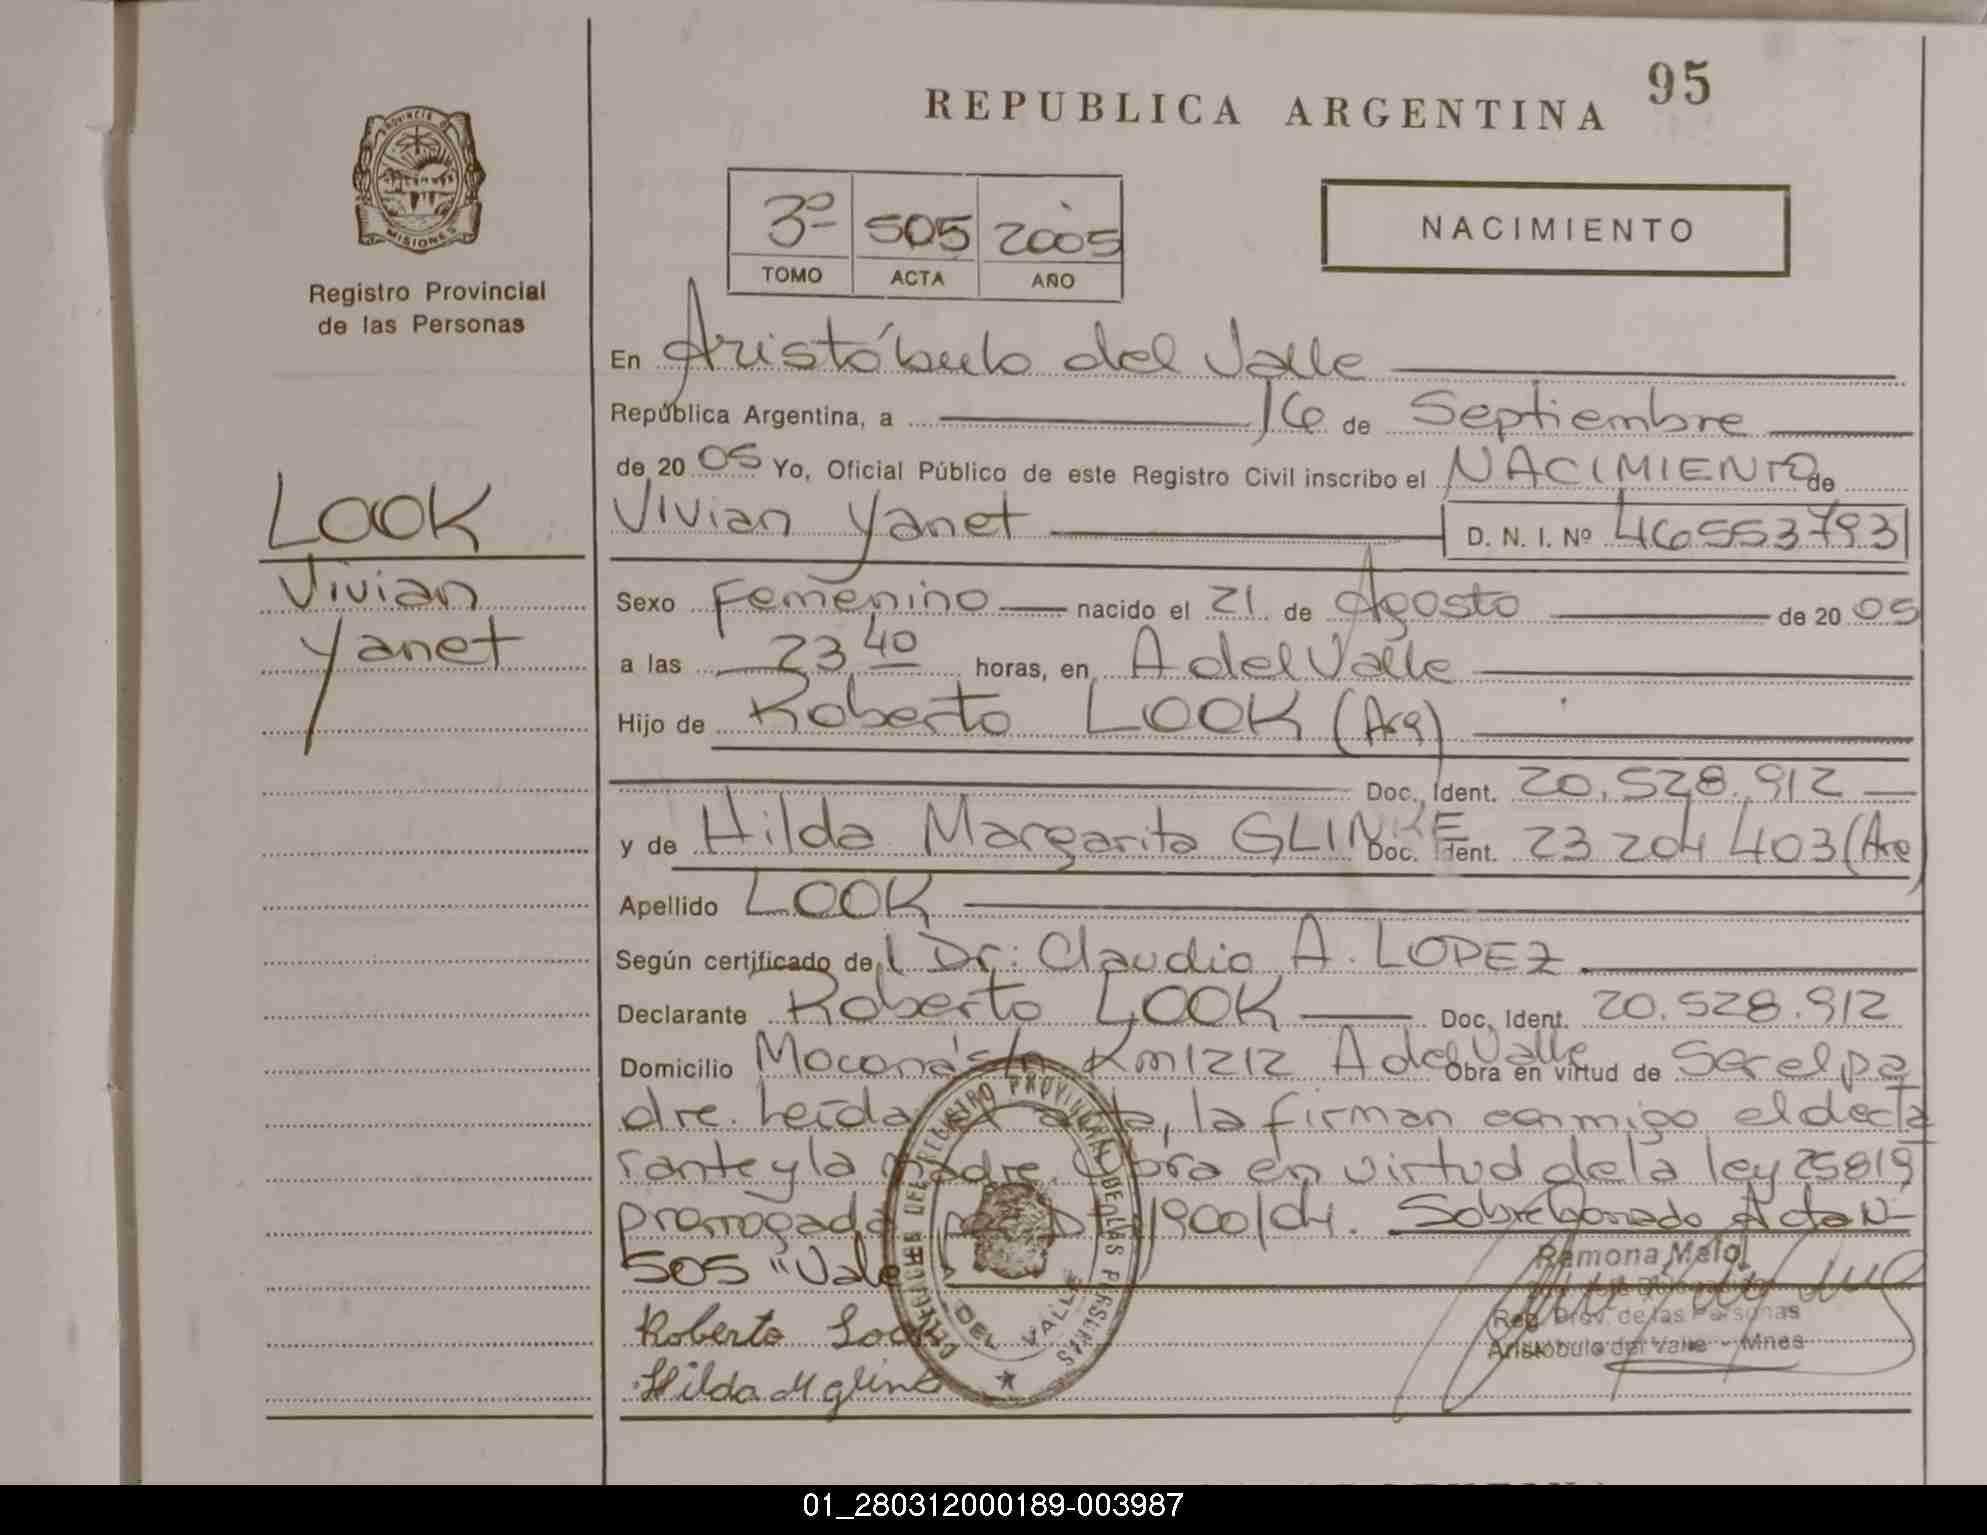 95
REPUBLICA ARGENTINA
PROVINCIA DE
MISIONES
Registro Provincial
de las Personas
3º 505 2005
TOMO ACTA AÑO
NACIMIENTO
En Aristóbulo del Valle
República Argentina, a 16 de Septiembre
de 20 05 Yo, Oficial Público de este Registro Civil inscribo el NACIMIENTO de
Vivian Yanet D. N. I. Nº 46553793
LOOK
Vivian
Yanet
Sexo Femenino nacido el 21 de Agosto de 20 05
a las 23 40 horas, en A del Valle
Hijo de Roberto LOOK (Arg)
Doc. Ident. 20.528.912
y de Hilda Margarita GLINKE Doc. Ident. 23 204 403 (Arg
Apellido LOOK
Según certificado del Dr: Claudio A. LOPEZ
Declarante Roberto LOOK Doc. Ident. 20.528.912
Domicilio Moconá s/n Km 1212 A del Valle Obra en virtud de Ser el pa
dre. Leída el acta, la firman conmigo el decla
rante y la madre. Obra en virtud de la ley 25819
prorrogada 1900/04. Sobreborrado Acta Nº
505 "Vale
Roberto Look
Hilda M glink
REGISTRO PROVINCIAL DE LAS PERSONAS
A DEL VALLE
Ramona Melo
Reg. Prov. de las Personas
Aristóbulo del Valle - Mnes
01_280312000189-003987